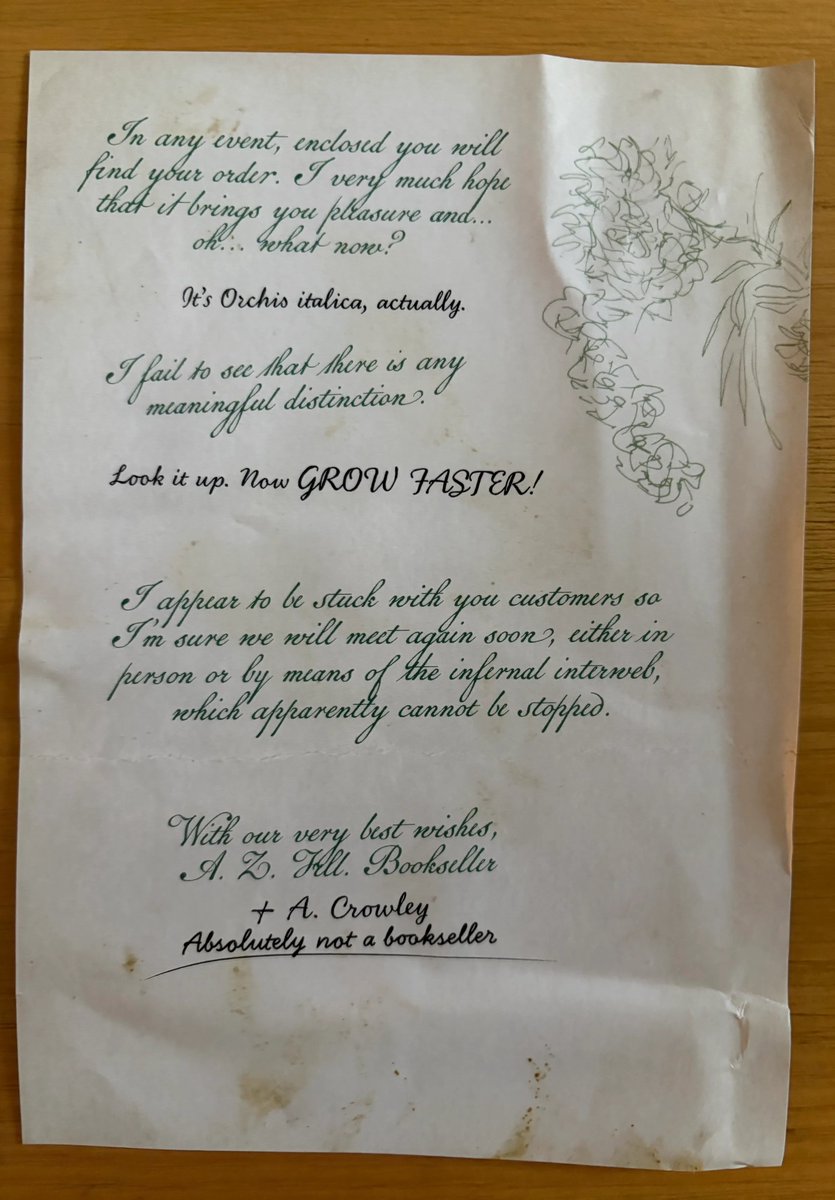 In any event, enclosed you will
find your order. I very much hope
that it brings you pleasure and...
oh... what now?
It's Orchis italica, actually.
I fail to see that there is any
meaningful distinction.
Look it up. Now GROW FASTER!
I appear to be stuck with you customers so
I'm sure we will meet again soon, either in
person or by means of the infernal interweb,
which apparently cannot be stopped.
With our very best wishes,
A. Z. Fell. Bookseller
+ A. Crowley
Absolutely not a bookseller